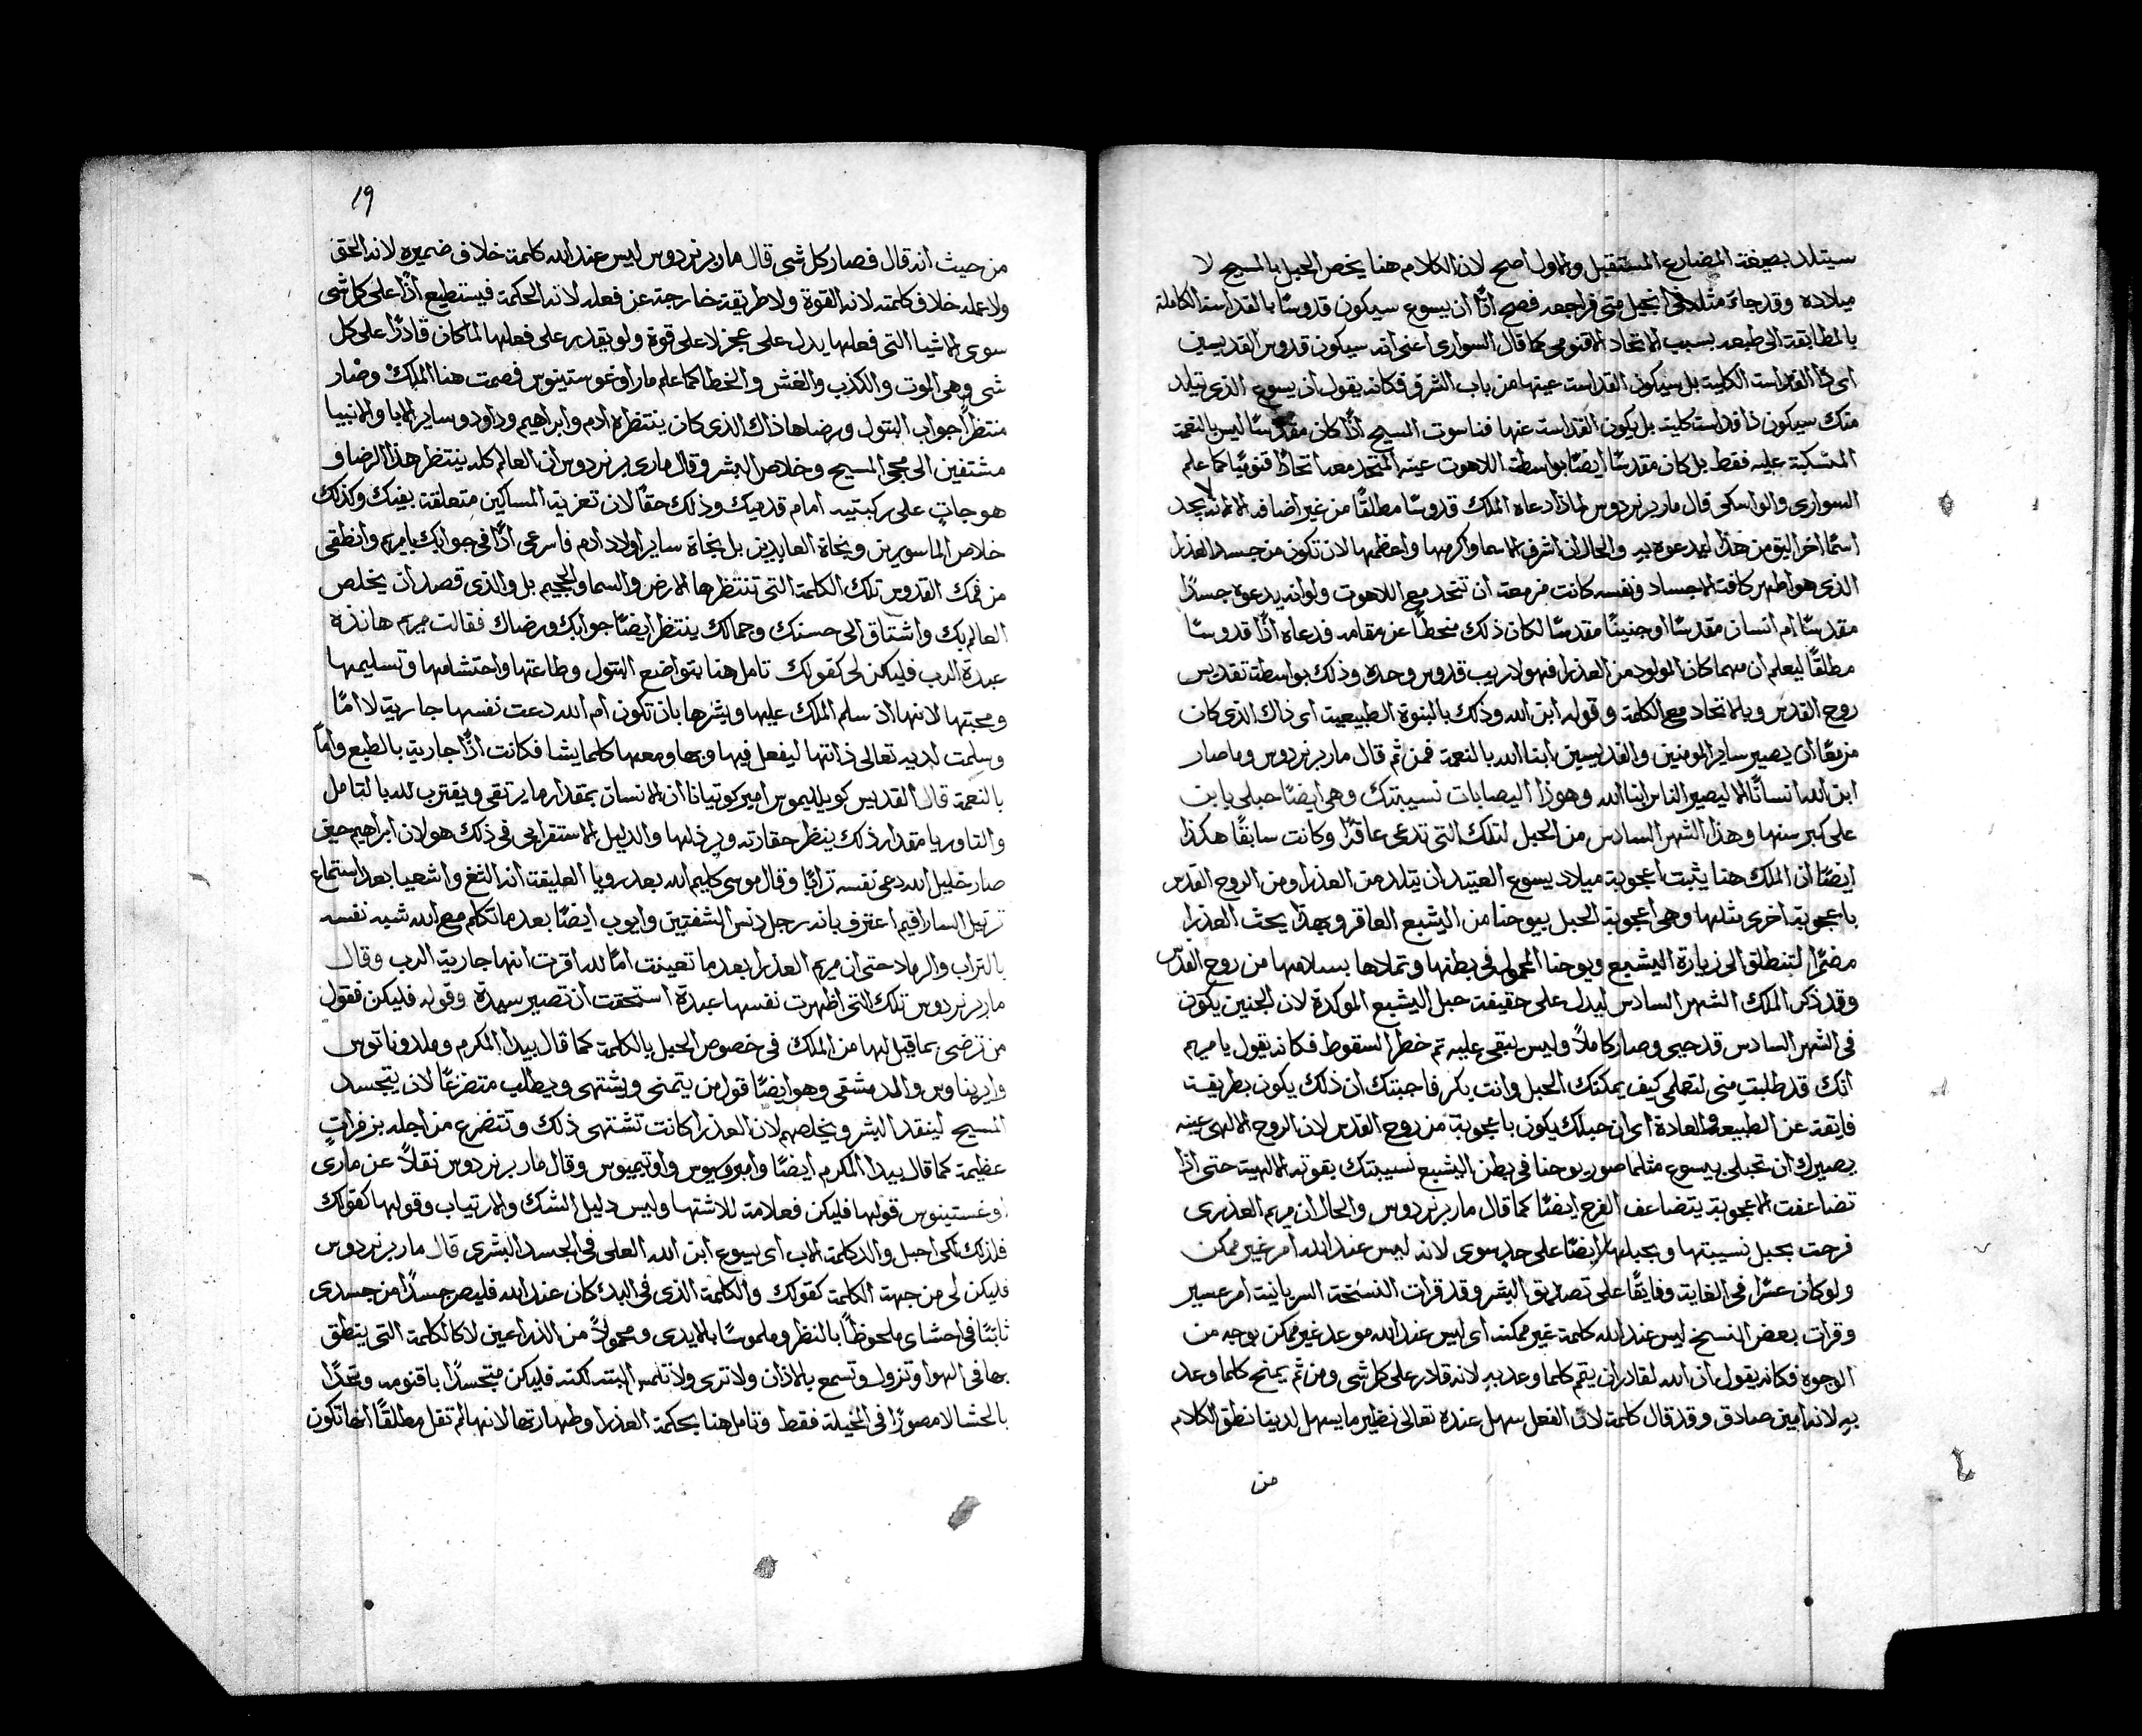 سيتلد بصيغة المضارع المستقبل والاول اصح لان الكلام هنا يخص الحبل بالمسيح لا
ميلاده وقد جاء مثله في انجيل متى فراجعه فصح اذًا ان يسوع سيكون قدوسًا بالقداسة الكاملة
بالمطابقة الى طبعه بسبب الاتحاد الاقنومي كما قال السوارى اعنى انه سيكون قدوس القديسين
اى ذا القداسة الكلية بل سيكون القداسة عينها من باب الشرف فكانه يقول ان يسوع الذى يتلد
منك سيكون ذا قداسة كلية بل يكون القداسة عنها فناسوت المسيح اذًا كان مقدسًا ليس بالنعمة
المنسكبة عليه فقط بل كان مقدسًا ايضًا بواسطة اللاهوت عينه المتحد معه اتحادًا قنوميًا كما علم
السوارى والواسكى قال مار برنردوس لماذا دعاه الملك قدوسًا مطلقًا من غير اضافه الا لانه لا يجد
اسمًا اخر اليق من هذا ليدعوه به والحال ان اشرف الاسما واكرمها واعظمها لان تكون من جسد العذرا
الذى هو اطهر كافة الاجساد ونفسه كانت مزمعة ان تتحد مع اللاهوت ولو انه يدعوه جسدًا
مقدسًا ام انسان مقدسًا او جنينًا مقدسًا لكان ذلك منحطًا عن مقامه فدعاه اذًا قدوسًا
مطلقًا ليعلم ان مهما كان المولود من العذرا فهو لا ريب قدوس وحده وذلك بواسطة تقديس
روح القدس وبالاتحاد مع الكلمة وقوله ابن الله وذلك بالبنوة الطبيعية اى ذاك الذى كان
مزمعًا ان يصير ساير المومنين والقديسين ابنا الله بالنعمة فمن ثم قال مار برنردوس وما صار
ابن الله انسانًا الا ليصير الناس ابنا الله وهوذا اليصابات نسيبتك وهى ايضًا حبلى بابن
على كبر سنها وهذا الشهر السادس من الحبل لتلك التى تدعى عاقرًا وكانت سابقًا هكذا
ايضًا ان الملك هنا يثبت اعجوبة ميلاد يسوع العتيد ان يتلد من العذرا ومن الروح القدس
باعجوبة اخرى مثلها وهى اعجوبة الحبل بيوحنا من اليشبع العاقر وبهذا يحث العذرا
مضمرًا لتنطلق الى زيارة اليشبع ويوحنا المحمول في بطنها وتملاها بسلامها من روح القدس
وقد ذكر الملك الشهر السادس ليدل على حقيقة حبل اليشبع الموكدة لان الجنين يكون
في الشهر السادس قد حيى وصار كاملًا وليس يبقى عليه ثم خطر السقوط فكانه يقول يا مريم
انك قد طلبت منى لتعلمى كيف يمكنك الحبل وانت بكر فاجبتك ان ذلك يكون بطريقة
فايقة عن الطبيعة والعادة اى ان حبلك يكون باعجوبة من روح القدس لان الروح الالهى عينه
يصيرك ان تحبلى بيسوع مثلما صور يوحنا في بطن اليشبع نسيبتك بقوته الالهية حتى اذا
تضاعفت الاعجوبة يتضاعف الفرح ايضًا كما قال مار برنردوس والحال ان مريم العذرى
فرحت بحبل نسيبتها وبحبلها ايضًا على حد سوى لانه ليس عند الله امر غير ممكن
ولو كان عسرًا في الغاية وفايقًا على تصديق البشر وقد قرات النسخة السريانية امر عسير
وقرات بعض النسخ ليس عند الله كلمة غير ممكنه اى ليس عند الله موعد غير ممكن بوجه من
الوجوه فكانه يقول ان الله لقادر ان يتمم كلما وعد به لانه قادر على كل شى ومن ثم يمنح كلما وعد
به لانه امين صادق وقد قال كلمة لان الفعل سهل عنده تعالى نظير ما يسهل لدينا نطق الكلام
من
19
من حيث انه قال فصار كل شى قال مار برنردوس ليس عند الله كلمة خلاف ضميره لانه الحق
ولا عمله خلاف كلمته لانه القوة ولا طريقة خارجة عن فعله لانه الحكمة فيستطيع اذًا على كل شى
سوى الاشيا التى فعلها يدل على عجز لا على قوة ولو يقدر على فعلها لما كان قادرًا على كل
شى وهى الموت والكذب والغش والخطا كما علم مار اوغوستينوس فصمت هنا الملك وصار
منتظرًا جواب البتول ورضاها ذاك الذى كان ينتظره ادم وابراهيم وداود وساير الابا والانبيا
مشتقين الى مجى المسيح وخلاص البشر وقال مارى برنردوس ان العالم كله ينتظر هذا الرضا و
هو جاثٍ على ركبتيه امام قدميك وذلك حقًا لان تعزية المساكين متعلقة بفيك وكذلك
خلاص الماسورين ونجاة العابدين بل نجاة ساير اولاد ادم فاسرعى اذًا في جوابك يا مريم وانطقى
من فمك القدوس تلك الكلمة التى تنتظرها الارض والسما والجحيم بل والذى قصد ان يخلص
العالم بك واشتاق الى حسنك وجمالك ينتظر ايضًا جوابك ورضاك فقالت مريم هانذه
عبدة الرب فليكن لى كقولك تامل هنا بتواضع البتول وطاعتها واحتشامها وتسليمها
ومحبتها لانها اذ سلم الملك عليها وبشرها بان تكون ام الله دعت نفسها جارية لا امًا
وسلمت لديه تعالى ذاتها ليفعل فيها وبها ومعها كلما يشا فكانت اذًا جارية بالطبع واما
بالنعمة قال القديس كويلليموس امير كوتيانا ان الانسان بمقدار ما يرتقى ويقترب لله بالتامل
والتاوريا مقدار ذلك ينظر حقارته ويرذلها والدليل الاستقراعى في ذلك هو لان ابراهيم حين
صار خليل الله دعى نفسه ترابًا وقال موسى كليم الله بعد رويا العليقة انه التغ واشعيا بعد استماع
ترتيل الساراقيم اعترف بانه رجل دنس الشفتين وايوب ايضًا بعد ما تكلم مع الله شبه نفسه
بالتراب والرماد حتى ان مريم العذرا بعد ما تعينت امًا لله اقرت انها جارية الرب وقال
مار برنردوس تلك التى اظهرت نفسها عبدة استحقت ان تصير سيدة وقوله فليكن فقول
من ترضى بما قيل لها من الملك في خصوص الحبل بالكلمة كما قال بيدا المكرم وملدوناتوس
وايريناوس والدمشقى وهو ايضًا قول من يتمنى ويشتهى ويطلب متضرعًا لان يتجسد
المسيح لينقد البشر ويخلصهم لان العذرا كانت تشتهى ذلك وتتضرع من اجله بزفراتٍ
عظيمة كما قال بيدا المكرم ايضًا وامبروسيوس واوتيميوس وقال مار برنردوس نقلًا عن مارى
اوغستينوس قولها فليكن فعلامة للاشتها وليس دليل الشك والارتياب وقولها كقولك
فلذلك لكى احبل والد كلمة الاب اى يسوع ابن الله العلى في الجسد البشرى قال مار برنردوس
فليكن لى من جهة الكلمة كقولك والكلمة الذى في البدء كان عند الله فليصر جسدًا من جسدى
ثابتًا في احشاى ملحوظًا بالنظر وملموسًا بالايدى ومحمولًا من الذراعين لا كالكلمة التى ينطق
بها في الهوا وتزول وتسمع بالاذان ولا ترى ولا تلمس البته لكنه فليكن متجسدًا باقنومه ومتحدًا
بالحشا لا مصورًا في المخيلة فقط وتامل هنا بحكمة العذرا وطهارتها لانها لم تقل مطلقًا انها تكون